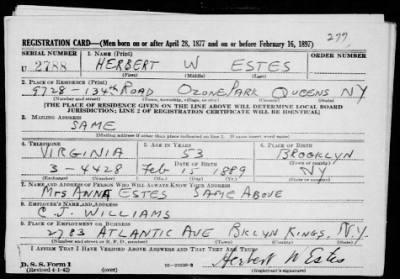 277
REGISTRATION CARD—(Men born on or after April 28, 1877 and on or before February 16, 1897)
SERIAL NUMBER 1. NAME (Print) ORDER NUMBER
U 2788 HERBERT W ESTES
(First) (Middle) (Last)
2. PLACE OF RESIDENCE (Print)
9728-134th ROAD OZONE PARK QUEENS NY
(Number and street) (Town, township, village, or city) (County) (State)
[THE PLACE OF RESIDENCE GIVEN ON THE LINE ABOVE WILL DETERMINE LOCAL BOARD
JURISDICTION; LINE 2 OF REGISTRATION CERTIFICATE WILL BE IDENTICAL]
3. MAILING ADDRESS
SAME
[Mailing address if other than place indicated on line 2. If same insert word same]
4. TELEPHONE 5. AGE IN YEARS 6. PLACE OF BIRTH
VIRGINIA 53 BROOKLYN
DATE OF BIRTH
3-4428 Feb 15 1889 NY
7. NAME AND ADDRESS OF PERSON WHO WILL ALWAYS KNOW YOUR ADDRESS
MRS ANNA ESTES SAME ABOVE
8. EMPLOYER'S NAME AND ADDRESS
C J WILLIAMS
9. PLACE OF EMPLOYMENT OR BUSINESS
2783 ATLANTIC AVE BKLYN KINGS, N.Y.
(Number and street or R. F. D. number) (Town) (County) (State)
I AFFIRM THAT I HAVE VERIFIED ABOVE ANSWERS AND THAT THEY ARE TRUE.
D. S. S. Form 1
(Revised 4-1-42) (over)
Herbert W Estes
(Registrant's signature)